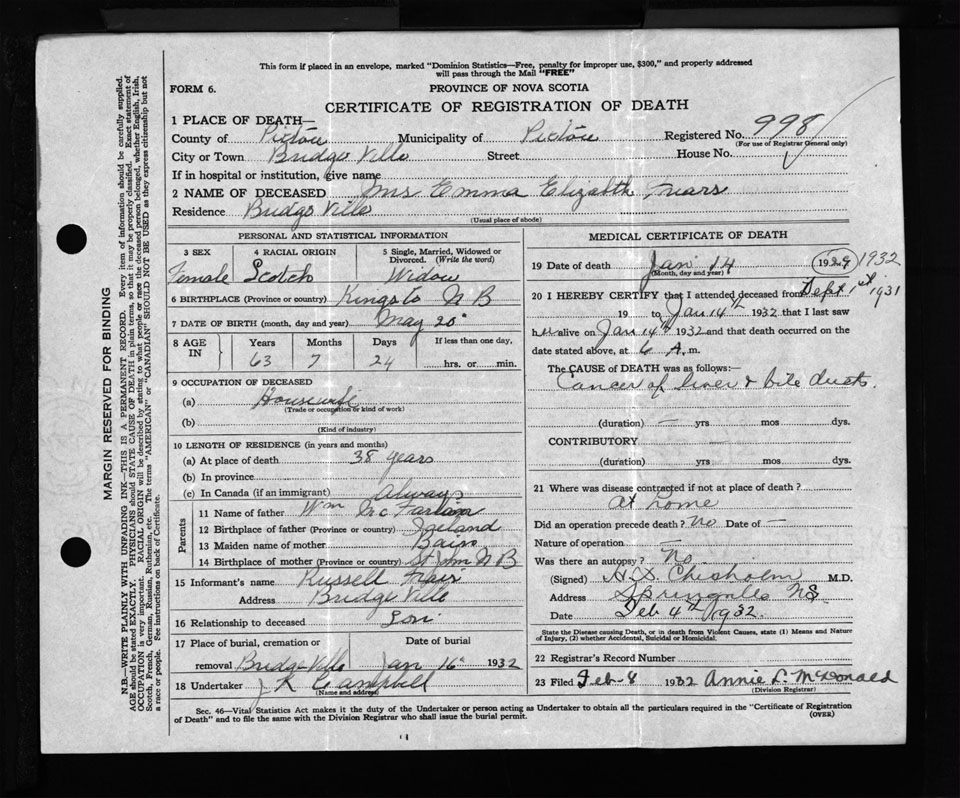 This form if placed in an envelope, marked "Dominion Statistics—Free, penalty for improper use, $300," and properly addressed
will pass through the Mail "FREE"
FORM 6.
PROVINCE OF NOVA SCOTIA
CERTIFICATE OF REGISTRATION OF DEATH
1 PLACE OF DEATH—
County of Pictou Municipality of Pictou Registered No. 998
(For use of Registrar General only)
City or Town Bridge Ville Street House No.
If in hospital or institution, give name
2 NAME OF DECEASED Mrs Emma Elizabth Friars
Residence Bridge Ville
(Usual place of abode)
PERSONAL AND STATISTICAL INFORMATION
3 SEX 4 RACIAL ORIGIN 5 Single, Married, Widowed or Divorced. (Write the word)
Female Scotch Widow
6 BIRTHPLACE (Province or country) Kings Co N B
7 DATE OF BIRTH (month, day and year) May 20
8 AGE IN Years Months Days If less than one day,
63 7 24 hrs. or min.
9 OCCUPATION OF DECEASED
(a) Housewife
(Trade or occupation or kind of work)
(b)
(Kind of industry)
10 LENGTH OF RESIDENCE (in years and months)
(a) At place of death 38 years
(b) In province
(c) In Canada (if an immigrant) Always
Parents
11 Name of father Wm Mc Farlain
12 Birthplace of father (Province or country) Ireland
13 Maiden name of mother Bain
14 Birthplace of mother (Province or country) St John N B
15 Informant's name Russell Friars
Address Bridge Ville
16 Relationship to deceased Son
17 Place of burial, cremation or removal Bridge Ville Date of burial Jan 16 1932
18 Undertaker J R Campbell
(Name and address)
MEDICAL CERTIFICATE OF DEATH
19 Date of death Jan 14 1929 1932
(Month, day and year)
20 I HEREBY CERTIFY that I attended deceased from Sept 1st 1931
19 to Jan 14th 1932 that I last saw
her alive on Jan 14th 1932 and that death occurred on
date stated above, at 6 A. m.
The CAUSE of DEATH was as follows:—
Cancer of liver & bile ducts.
(duration) — yrs mos dys.
CONTRIBUTORY
(duration) yrs mos dys.
21 Where was disease contracted if not at place of death?
At home
Did an operation precede death? No Date of —
Nature of operation —
Was there an autopsy? No
(Signed) Chisholm M.D.
Address NS
Date Feb 4th 1932.
State the Disease causing Death, or in death from Violent Causes, state (1) Means and Nature of Injury, (2) whether Accidental, Suicidal or Homicidal.
22 Registrar's Record Number
23 Filed Feb 8 1932 Annie L. McDonald
(Division Registrar)
Sec. 46—Vital Statistics Act makes it the duty of the Undertaker or person acting as Undertaker to obtain all the particulars required in the "Certificate of Registration
of Death" and to file the same with the Division Registrar who shall issue the burial permit.
(OVER)
MARGIN RESERVED FOR BINDING
N.B—WRITE PLAINLY WITH UNFADING INK—THIS IS A PERMANENT RECORD. Every item of information should be carefully supplied.
AGE should be stated EXACTLY. PHYSICIANS should STATE CAUSE OF DEATH in plain terms, so that it may be properly classified. Exact statement of
OCCUPATION is very important. RACIAL ORIGIN will be described by stating to what people or race the deceased person belonged, whether English, Irish,
Scotch, French, German, Russian, Ruthenian, etc. The terms "AMERICAN" or "CANADIAN" SHOULD NOT BE USED as they express citizenship but not
a race or people. See instructions on back of Certificate.